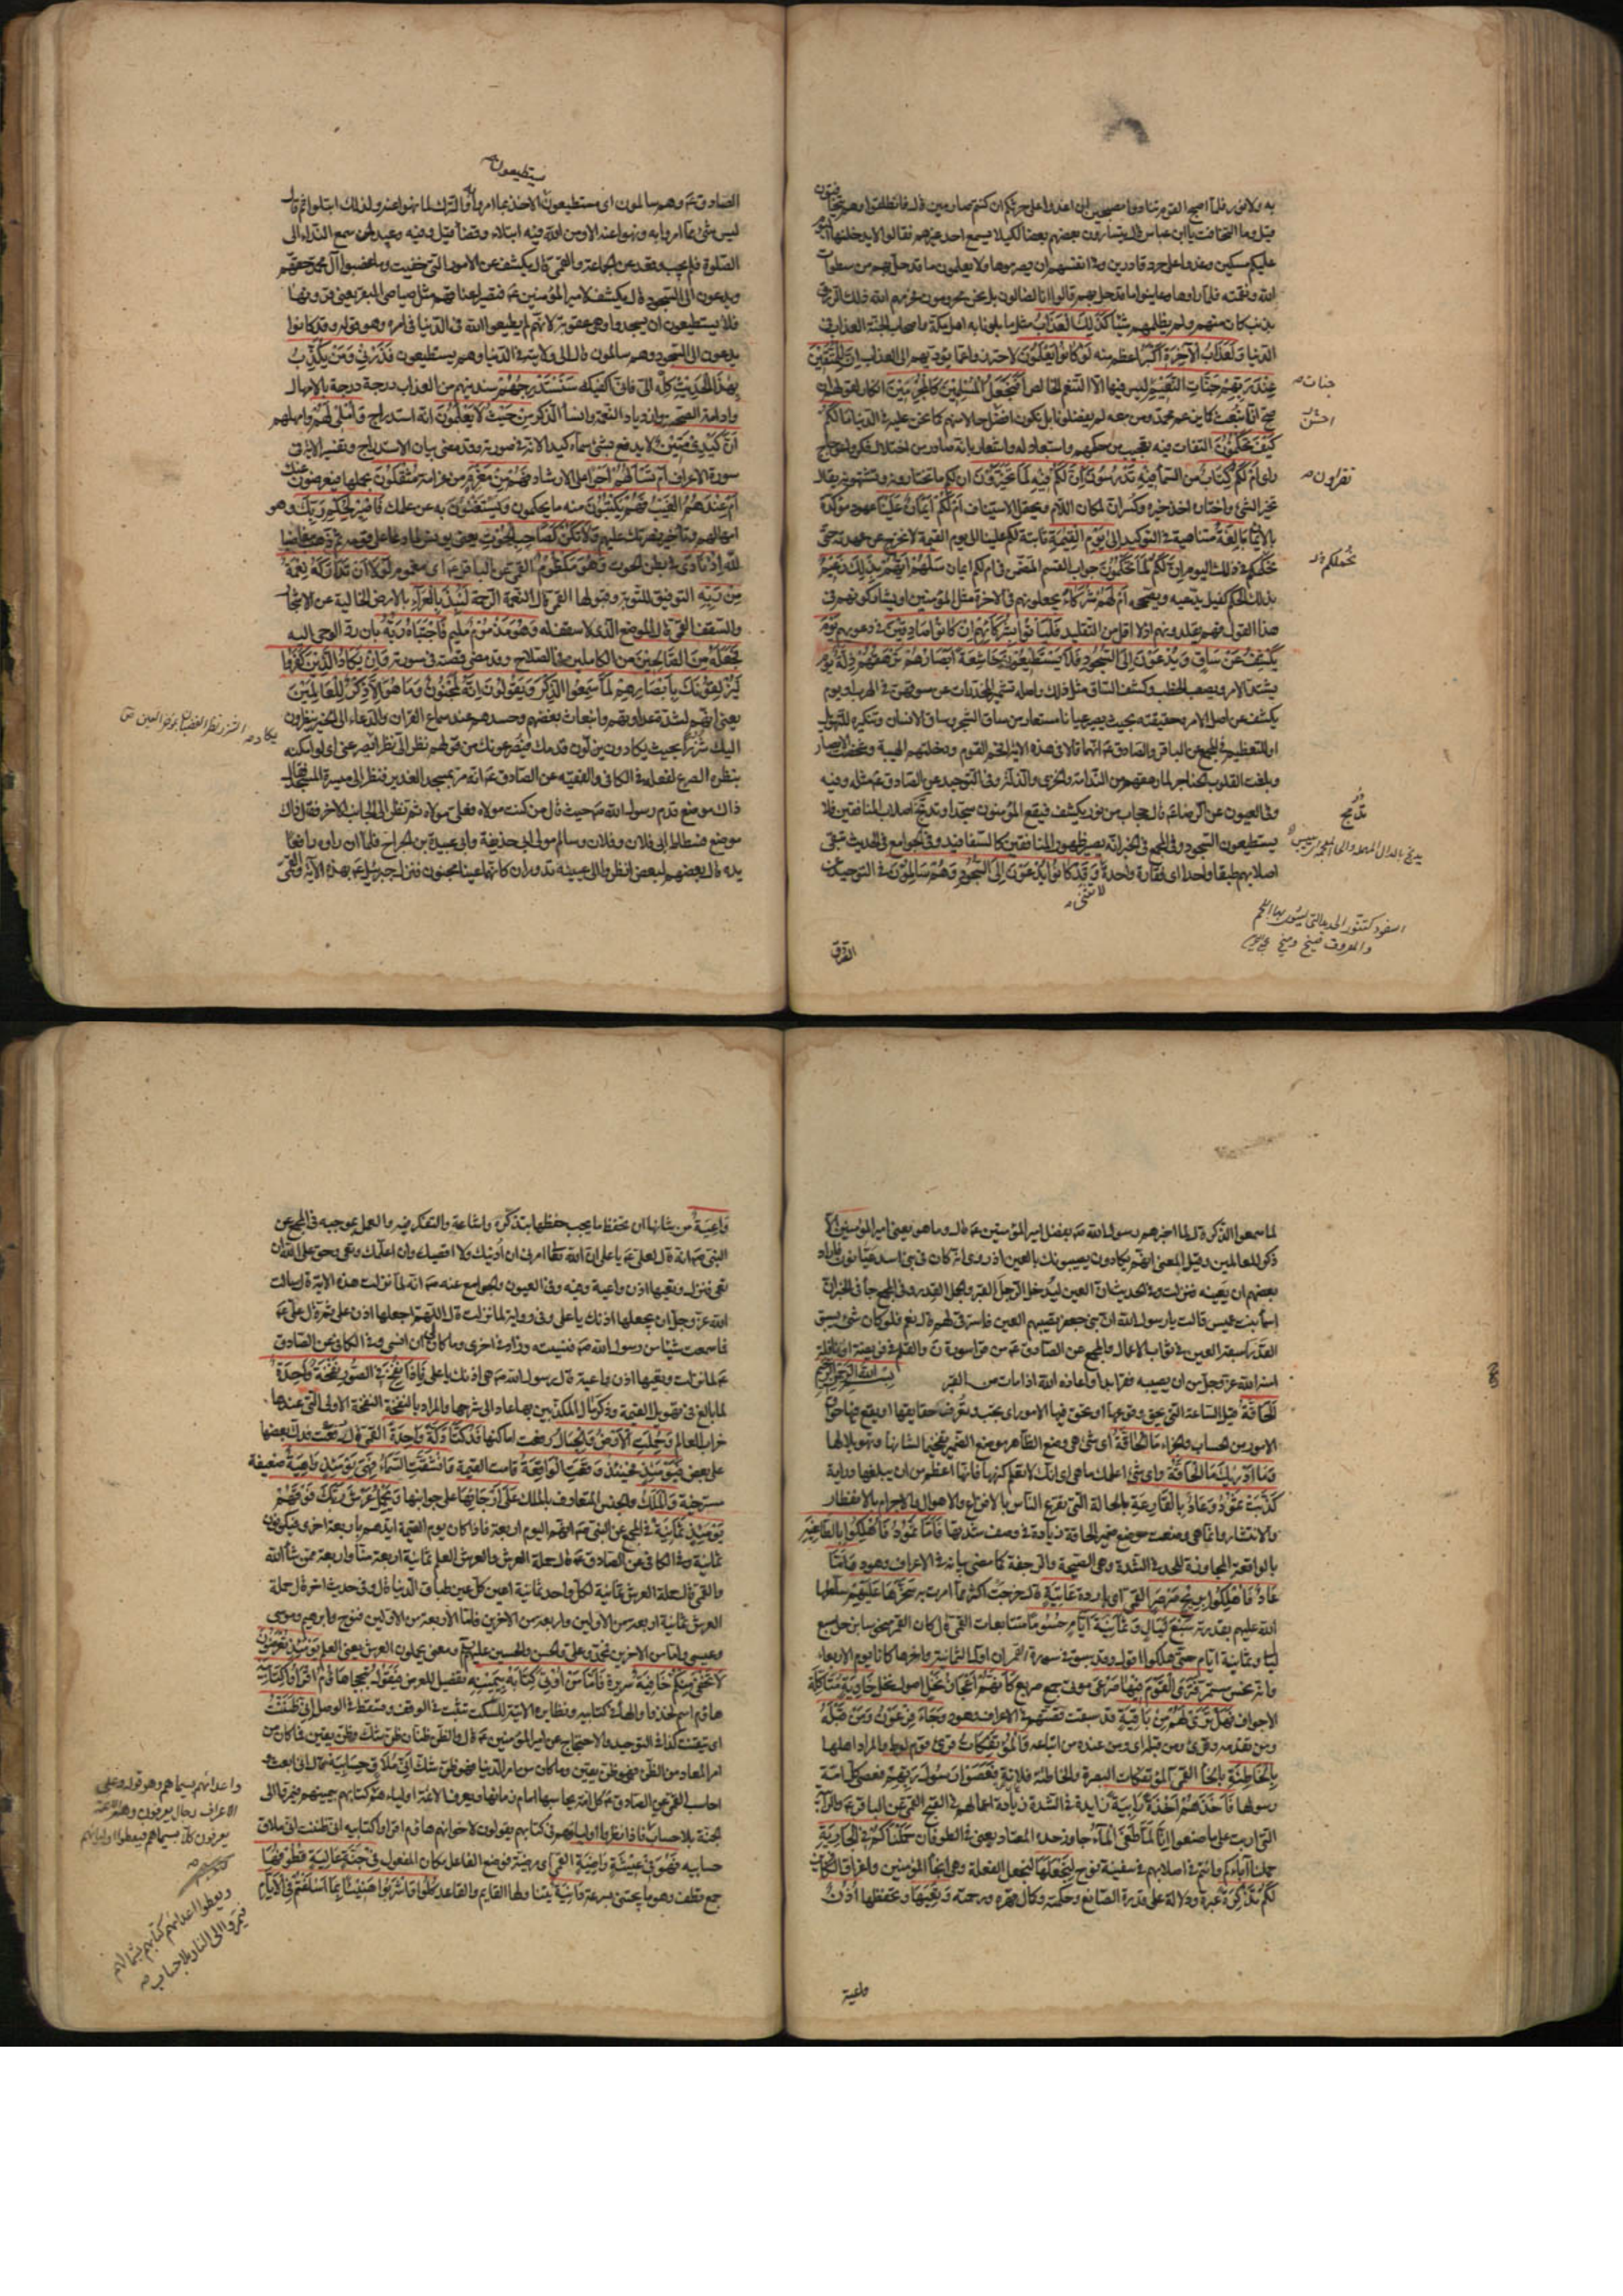 به ولا قوة فلما اصبح القوم فتنادوا مصبحين ان اغدوا على حرثكم ان كنتم صارمين قال فانطلقوا وهم يتخافتون
قيل وما التخافت يا ابن عباس قال يتسارون بعضهم بعضا لكيلا يسمع احد غيرهم فقالوا لا يدخلنها اليوم
عليكم مسكين وغدوا على حرد قادرين وفي انفسهم ان يصرموها ولا يعلمون ما قد حل بهم من سطوات
الله ونقمته فلما راوها وعاينوا ما قد حل بهم قالوا انا لضالون بل نحن محرومون فحرمهم الله ذلك الرزق
بذنب كان منهم ولم يظلمهم شيئا كَذَلِكَ العَذَابُ مثل ما بلونا به اهل مكة واصحاب الجنة العذاب في
الدنيا وَلَعَذَابُ الآخِرَةِ أَكْبَرُ اعظم منه لَوْ كَانُوا يَعْلَمُونَ لاحترزوا عما يؤديهم الى العذاب اِنَّ لِلْمُتَّقِينَ
عِنْدَ رَبِّهِمْ جَنَّاتِ النَّعِيمِ ليس فيها الا التنعم الخالص أَفَنَجْعَلُ الْمُسْلِمِينَ كَالْمُجْرِمِينَ انكار لقولهم ان
صح انا نبعث كما يزعم محمد ومن معه لم يفضلونا بل نكون احسن حالا منهم كما نحن عليه في الدنيا مَا لَكُمْ
كَيْفَ تَحْكُمُونَ التفات فيه تعجيب من حكمهم واستبعاد له واشعار بانه صادر من اختلال فكر واعوجاج
راى أَمْ لَكُمْ كِتَابٌ من السماء فِيهِ تَدْرُسُونَ إِنَّ لَكُمْ فِيهِ لَمَا تَخَيَّرُونَ ان لكم ما تختارونه وتشتهونه يقال
تخير الشئ واختاره اخذ خيره وكسر ان لمكان اللام ويحتمل الاستيناف أَمْ لَكُمْ أَيْمَانٌ عَلَيْنَا عهود مؤكدة
بالايمان بَالِغَةٌ متناهية في التوكيد إِلَى يَوْمِ الْقِيمَةِ ثابتة لكم علينا الى يوم القيمة لا نخرج عن عهدته حتى
نحكمكم في ذلك اليوم إِنَّ لَكُمْ لَمَا تَحْكُمُونَ جواب القسم المضمن في ام لكم ايمان سَلْهُمْ أَيُّهُمْ بِذَلِكَ زَعِيمٌ
بذلك الحكم كفيل يدعيه ويصححه أَمْ لَهُمْ شُرَكَاءُ يجعلونهم في الاخرة مثل المؤمنين او يشاركونهم في
هذا القول فهم يقلدونهم اذ لا اقل من التقليد فَلْيَأْتُوا بِشُرَكَائِهِمْ إِنْ كَانُوا صَادِقِينَ في دعويهم يَوْمَ
يُكْشَفُ عَنْ سَاقٍ وَيُدْعَوْنَ إِلَى السُّجُودِ فَلَا يَسْتَطِيعُونَ خَاشِعَةً أَبْصَارُهُمْ تَرْهَقُهُمْ ذِلَّةٌ يوم
يشتد الامر ويصعب الخطب وكشف الساق مثل في ذلك واصله تشمير المخدرات عن سوقهن في الهرب او يوم
يكشف عن اصل الامر وحقيقته بحيث يصير عيانا مستعار من ساق الشجر وساق الانسان وتنكيره للتهويل
او للتعظيم في المجمع عن الباقر والصادق ع انهما قالا في هذه الاية افحم القوم ودخلتهم الهيبة وشخصت الابصار
وبلغت القلوب الحناجر لما رهقهم من الندامة والخزي والذلة وفي التوحيد عن الصادق ع مثله وفيه
وفي العيون عن الرضا ع قال حجاب من نور يكشف فيقع المؤمنون سجدا وتدمج اصلاب المنافقين فلا
يستطيعون السجود وفي المجمع في الخبر انه يصير ظهور المنافقين كالسفافيد وفي الجوامع في الحديث تبقى
اصلابهم طبقا واحدا اى فقارة واحدة وَقَدْ كَانُوا يُدْعَوْنَ إِلَى السُّجُودِ وَهُمْ سَالِمُونَ في التوحيد عن
لا تنثنى
جنات
احسن
تقرؤن
نحملكم
تدمج
السفود كتنور الحديدة التي يشوى بها اللحم
يستطيعون
الصادق ع وهم سالمون اى مستطيعون الاخذ بما امروا به والترك لما نهوا عنه ولذلك ابتلوا ثم قال
ليس شئ مما امروا به ونهوا عنه الا ومن الله فيه ابتلاء وقضا قيل وفيه وعيد لمن سمع النداء الى
الصلوة فلم يجب وقعد عن الجماعة والقمي قال يكشف عن الامور التي خفيت وما غصبوا آل محمد حقهم
ويدعون الى السجود قال يكشف لامير المؤمنين ع فتصير اعناقهم مثل صياصي البقر يعني قرونها
فلا يستطيعون ان يسجدوا وهي عقوبة لانهم لم يطيعوا الله في الدنيا في امره وهو قوله وقد كانوا
يدعون الى السجود وهم سالمون قال الى ولايته في الدنيا وهم يستطيعون فَذَرْنِي وَمَنْ يُكَذِّبُ
بِهَذَا الْحَدِيثِ كله الي فاني اكفيك سَنَسْتَدْرِجُهُمْ سندنيهم من العذاب درجة درجة بالامهال
وادامة الصحة وازدياد النعمة وانساء الذكر مِنْ حَيْثُ لَا يَعْلَمُونَ انه استدراج وَأُمْلِي لَهُمْ وامهلهم
إِنَّ كَيْدِي مَتِينٌ لا يدفع بشئ سماه كيدا لانه في صورته وقد مضى بيان الاستدراج وتفسير الاية في
سورة الاعراف أَمْ تَسْأَلُهُمْ أَجْرًا على الارشاد فَهُمْ مِنْ مَغْرَمٍ من غرامة مُثْقَلُونَ بحملها فيعرضون عنك
أَمْ عِنْدَهُمُ الْغَيْبُ فَهُمْ يَكْتُبُونَ منه ما يحكمون ويستغنون به عن علمك فَاصْبِرْ لِحُكْمِ رَبِّكَ وهو
امهالهم وتاخير نصرتك عليهم وَلَا تَكُنْ كَصَاحِبِ الْحُوتِ يعني يونس لما دعا على قومه ثم ذهب مغاضبا
لله إِذْ نَادَى في بطن الحوت وَهُوَ مَكْظُومٌ القمي عن الباقر ع اى مغموم لَوْلَا أَنْ تَدَارَكَهُ نِعْمَةٌ
مِنْ رَبِّهِ التوفيق للتوبة وقبولها القمي قال النعمة الرحمة لَنُبِذَ بِالْعَرَاءِ بالارض الخالية عن الاشجار
والسقف القمي قال الموضع الذي لا سقف له وَهُوَ مَذْمُومٌ مليم فَاجْتَبَاهُ رَبُّهُ بان رد الوحي اليه
فَجَعَلَهُ مِنَ الصَّالِحِينَ من الكاملين في الصلاح وقد مضى قصته في سورته وَإِنْ يَكَادُ الَّذِينَ كَفَرُوا
لَيُزْلِقُونَكَ بِأَبْصَارِهِمْ لَمَّا سَمِعُوا الذِّكْرَ وَيَقُولُونَ إِنَّهُ لَمَجْنُونٌ وَمَا هُوَ إِلَّا ذِكْرٌ لِلْعَالَمِينَ
يعني انهم لشدة عداوتهم وانبعاث بغضهم وحسدهم عند سماع القران والدعاء الى الخير ينظرون
اليك شزرا بحيث يكادون يزلون قدمك فيصرعونك من قولهم نظر الي نظرا يصرعني اى لو امكنه
بنظره الصرع لفعله وفي الكافي والفقيه عن الصادق ع انه مر بمسجد الغدير فنظر الى ميسرة المسجد فقال
ذاك موضع قدم رسول الله ص حيث قال من كنت مولاه فعلي مولاه ثم نظر الى الجانب الاخر فقال ذاك
موضع فسطاط ابي فلان وفلان وسالم مولى ابي حذيفة وابي عبيدة بن الجراح فلما ان راوه رافعا
يده قال بعضهم لبعض انظروا الى عينيه تدوران كانهما عينا مجنون فنزل جبرئيل ع بهذه الاية والقمي
لما سمعوا الذكر قال لما اخبرهم رسول الله ص بفضل امير المؤمنين ع قال وما هو يعني امير المؤمنين الا
ذكر للعالمين وقيل المعنى انهم يكادون يصيبونك بالعين اذ روي انه كان في بني اسد عيانون فاراد
بعضهم ان يعينه فنزلت وفي الحديث ان العين ليدخل الرجل القبر والجمل القدر وفي المجمع جاء في الخبر ان
اسما بنت عميس قالت يا رسول الله ان بني جعفر يصيبهم العين فاسترقى لهم قال نعم فلو كان شئ يسبق
القدر لسبقه العين في ثواب الاعمال والمجمع عن الصادق ع من قرا سورة ن والقلم في فريضة او نافلة
امنه الله عز وجل من ان يصيبه فقر ابدا واعاذه الله اذا مات من ضمة القبر بسم الله الرحمن الرحيم
الْحَاقَّةُ قيل الساعة التي يحق وقوعها او تحق فيها الامور اى يجب وتعرف حقايقها او يقع فيها حواق
الامور من الحساب والجزاء مَا الْحَاقَّةُ اى شئ هي وضع الظاهر موضع الضمير تفخيما لشانها وتهويلا لها
وَمَا أَدْرَيكَ مَا الْحَاقَّةُ واى شئ اعلمك ما هي اى انك لا تعلم كنهها فانها اعظم من ان يبلغها دراية
كَذَّبَتْ ثَمُودُ وَعَادٌ بِالْقَارِعَةِ بالحالة التي تقرع الناس بالافزاع والاهوال والاجرام بالانفطار
والانتشار وانما هي وضعت موضع ضمير الحاقة زيادة في وصف شدتها فَأَمَّا ثَمُودُ فَأُهْلِكُوا بِالطَّاغِيَةِ
بالواقعة المجاوزة للحد في الشدة وهي الصيحة والرجفة كما مضى بيانه في الاعراف وهود وَأَمَّا
عَادٌ فَأُهْلِكُوا بِرِيحٍ صَرْصَرٍ القمي اى باردة عَاتِيَةٍ قال خرجت اكثر مما امرت به سَخَّرَهَا عَلَيْهِمْ سلطها
الله عليهم بقدرته سَبْعَ لَيَالٍ وَثَمَانِيَةَ أَيَّامٍ حُسُومًا متتابعات القمي قال كان القمر منحوسا بزحل سبع
ليال وثمانية ايام حتى هلكوا
وانه نحس مستمر فَتَرَى الْقَوْمَ فِيهَا صَرْعَى موتى جمع صريع كَأَنَّهُمْ أَعْجَازُ نَخْلٍ اصول نخل خَاوِيَةٍ متاكلة
الاجواف فَهَلْ تَرَى لَهُمْ مِنْ بَاقِيَةٍ قد سبقت قصتهم في الاعراف وهود وَجَاءَ فِرْعَوْنُ وَمَنْ قَبْلَهُ
ومن تقدمه وقرئ ومن قبله اى ومن عنده من اتباعه وَالْمُؤْتَفِكَاتُ قرى قوم لوط والمراد اهلها
بِالْخَاطِئَةِ بالخطأ القمي المؤتفكات البصرة والخاطئة فلانة فَعَصَوْا رَسُولَ رَبِّهِمْ فعصى كل امة
رسولها فَأَخَذَهُمْ أَخْذَةً رَابِيَةً زايدة في الشدة زيادة اعمالهم في القبح القمي عن الباقر ع والرابية
التي اربت على ما صنعوا إِنَّا لَمَّا طَغَى الْمَاءُ جاوز حده المعتاد يعني في الطوفان حَمَلْنَاكُمْ فِي الْجَارِيَةِ
حملنا آباءكم وانتم في اصلابهم في سفينة نوح لِنَجْعَلَهَا لنجعل الفعلة وهي انجاء المؤمنين واغراق الكافرين
لَكُمْ تَذْكِرَةً عبرة ودلالة على قدرة الصانع وحكمته وكمال قهره ورحمته وَتَعِيَهَا وتحفظها أُذُنٌ
واعية
وَاعِيَةٌ من شانها ان تحفظ ما يجب حفظها بتذكره واشاعته والتفكر فيه والعمل بموجبه في المجمع عن
النبي ص انه قال لعلي ع يا علي ان الله تعالى امرني ان ادنيك ولا اقصيك وان اعلمك وتعي وحق على الله ان
تعي فنزل وتعيها اذن واعية وفيه وفي العيون والجوامع عنه ص انه لما نزلت هذه الاية قال سالت
الله عز وجل ان يجعلها اذنك يا علي وفي رواية لما نزلت قال اللهم اجعلها اذن علي ثم قال علي ع
فما سمعت شيئا من رسول الله ص فنسيته وزاد في اخرى وما كان لي ان انسى وفي الكافي عن الصادق
ع لما نزلت وتعيها اذن واعية قال رسول الله ص هي اذنك يا علي فَإِذَا نُفِخَ فِي الصُّورِ نَفْخَةٌ وَاحِدَةٌ
لما بالغ في تهويل القيمة وذكر مآل المكذبين بها عاد الى شرحها والمراد بالنفخة النفخة الاولى التي عندها
خراب العالم وَحُمِلَتِ الْأَرْضُ وَالْجِبَالُ رفعت اماكنها فَدُكَّتَا دَكَّةً وَاحِدَةً القمي قال وقعت فدك بعضها
على بعض فَيَوْمَئِذٍ فحينئذ وَقَعَتِ الْوَاقِعَةُ قامت القيمة وَانْشَقَّتِ السَّمَاءُ فَهِيَ يَوْمَئِذٍ وَاهِيَةٌ ضعيفة
مسترخية وَالْمَلَكُ والجنس المتعارف بالملك عَلَى أَرْجَائِهَا على جوانبها وَيَحْمِلُ عَرْشَ رَبِّكَ فَوْقَهُمْ
يَوْمَئِذٍ ثَمَانِيَةٌ في المجمع عن النبي ص انهم اليوم اربعة فاذا كان يوم القيمة ايدهم باربعة اخرى فيكونون
ثمانية وفي الكافي عن الصادق ع قال حملة العرش والعرش العلم ثمانية اربعة منا واربعة ممن شاء الله
والقمي قال حملة العرش ثمانية لكل واحد ثمانية اعين كل عين طباق الدنيا قال وفي حديث اخر قال حملة
العرش ثمانية اربعة من الاولين واربعة من الاخرين فاما الاربعة من الاولين فنوح وابرهيم وموسى
وعيسى واما من الاخرين فمحمد وعلي والحسن والحسين عليهم السلام ومعنى يحملون العرش يعني العلم يَوْمَئِذٍ تُعْرَضُونَ
لَا تَخْفَى مِنْكُمْ خَافِيَةٌ سريرة فَأَمَّا مَنْ أُوتِيَ كِتَابَهُ بِيَمِينِهِ تفصيل للعرض فَيَقُولُ تبجحا هَاؤُمُ اقْرَأُوا كِتَابِيَهْ
هاؤم اسم لخذوا والهاء في كتابيه ونظايره الاتية للسكت تثبت في الوقف وتسقط في الوصل إِنِّي ظَنَنْتُ
اى تيقنت كذا في التوحيد والاحتجاج عن امير المؤمنين ع قال والظن ظنان ظن شك وظن يقين فما كان من
امر المعاد من الظن فهو ظن يقين وما كان من امر الدنيا فهو ظن شك أَنِّي مُلَاقٍ حِسَابِيَهْ قال اني ابعث و
احاسب القمي عن الصادق ع كل امة يحاسبها امام زمانها ويعرف الائمة اولياءهم
الجنة بلا حساب فاذا نظروا اولياؤهم في كتابهم يقولون لاخوانهم هاؤم اقراوا كتابيه اني ظننت اني ملاق
حسابيه فَهُوَ فِي عِيشَةٍ رَاضِيَةٍ القمي اى مرضية فوضع الفاعل مكان المفعول فِي جَنَّةٍ عَالِيَةٍ قُطُوفُهَا
جمع قطف وهو ما يجتنى بسرعة دَانِيَةٌ يتناولها القايم والقاعد كُلُوا وَاشْرَبُوا هَنِيئًا بِمَا أَسْلَفْتُمْ فِي الْأَيَّامِ
واعدائهم بسيماهم وهو قوله وعلى
الاعراف رجال يعرفون وهم الائمة
يعرفون كلا بسيماهم فيعطوا اوليائهم
ويعطوا اعدائهم كتابهم بشمالهم
فيمروا الى النار بلا حساب